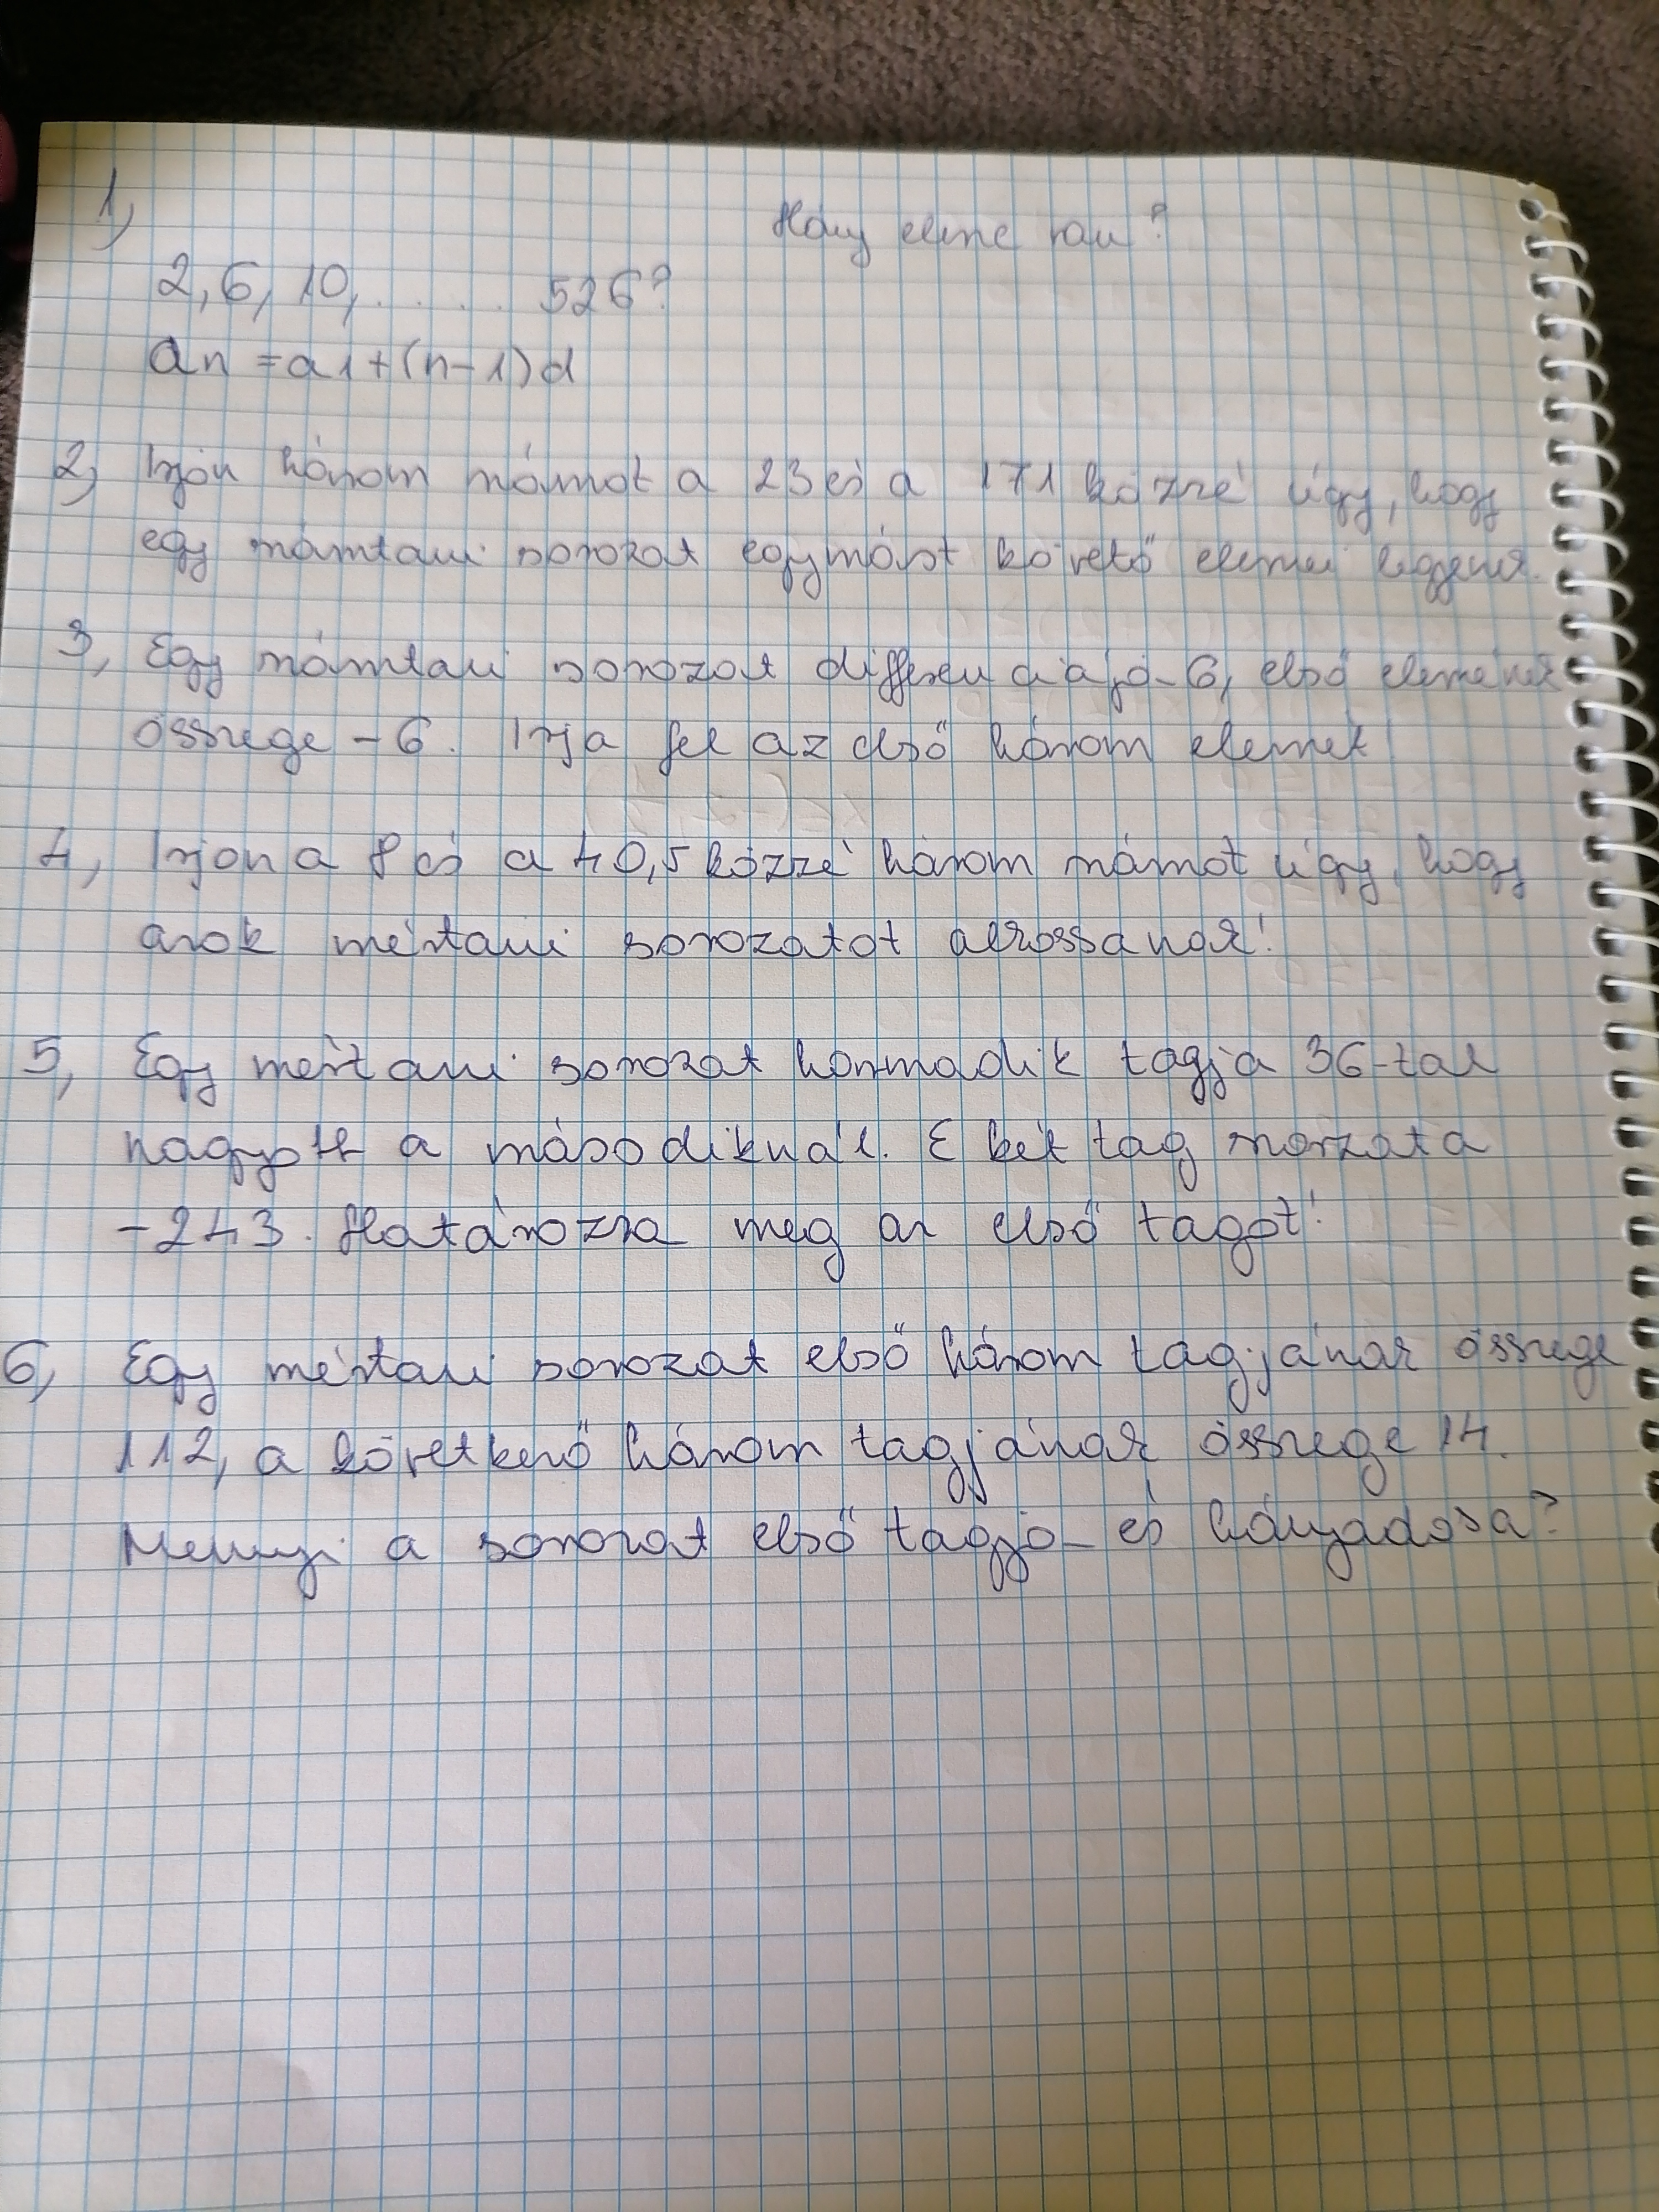 1,
Hány eleme van?
2, 6, 10, . . . . . 526?
an = a1+(n-1)d
2, Irjon három számot a 23 és a 171 közzé úgy, hogy
egy számtani sorozat egymást követő elemei legyenek.
3, Egy számtani sorozat differenciája -6, első elemének
összege -6. Irja fel az első három elemét!
4, Irjon a 8 és a 40,5 közzé három számot úgy, hogy
azok mértani sorozatot alkossanak!
5, Egy mértani sorozat harmadik tagja 36-tal
nagyobb a másodiknál. E két tag szorzata
-243. Határozza meg az első tagot!
6, Egy mértani sorozat első három tagjának összege
112, a következő három tagjának összege 14.
Mennyi a sorozat első tagja és hányadosa?